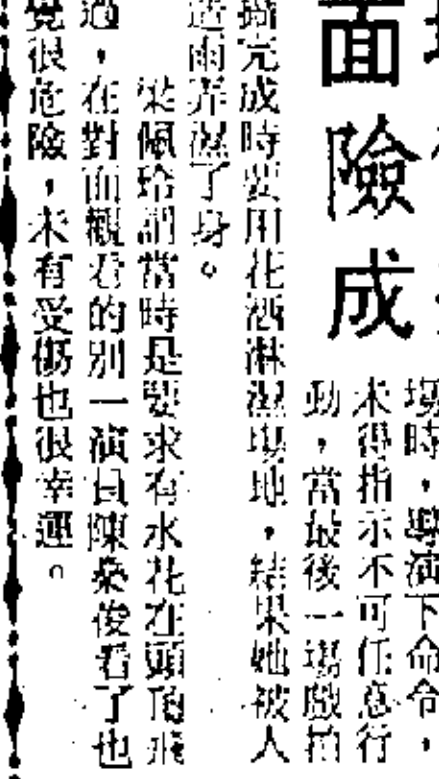 面險成
場時，導演下命令，
未得指示不可任意行
動，當最後一場戲拍
攝完成時要用花洒淋濕場地，結果她被人
造雨弄濕了身。
梁佩玲謂當時是要求有水花在頭頂飛
過，在對面觀看的别一演員陳桑俊看了也
覺很危險，未有受傷也很幸運。